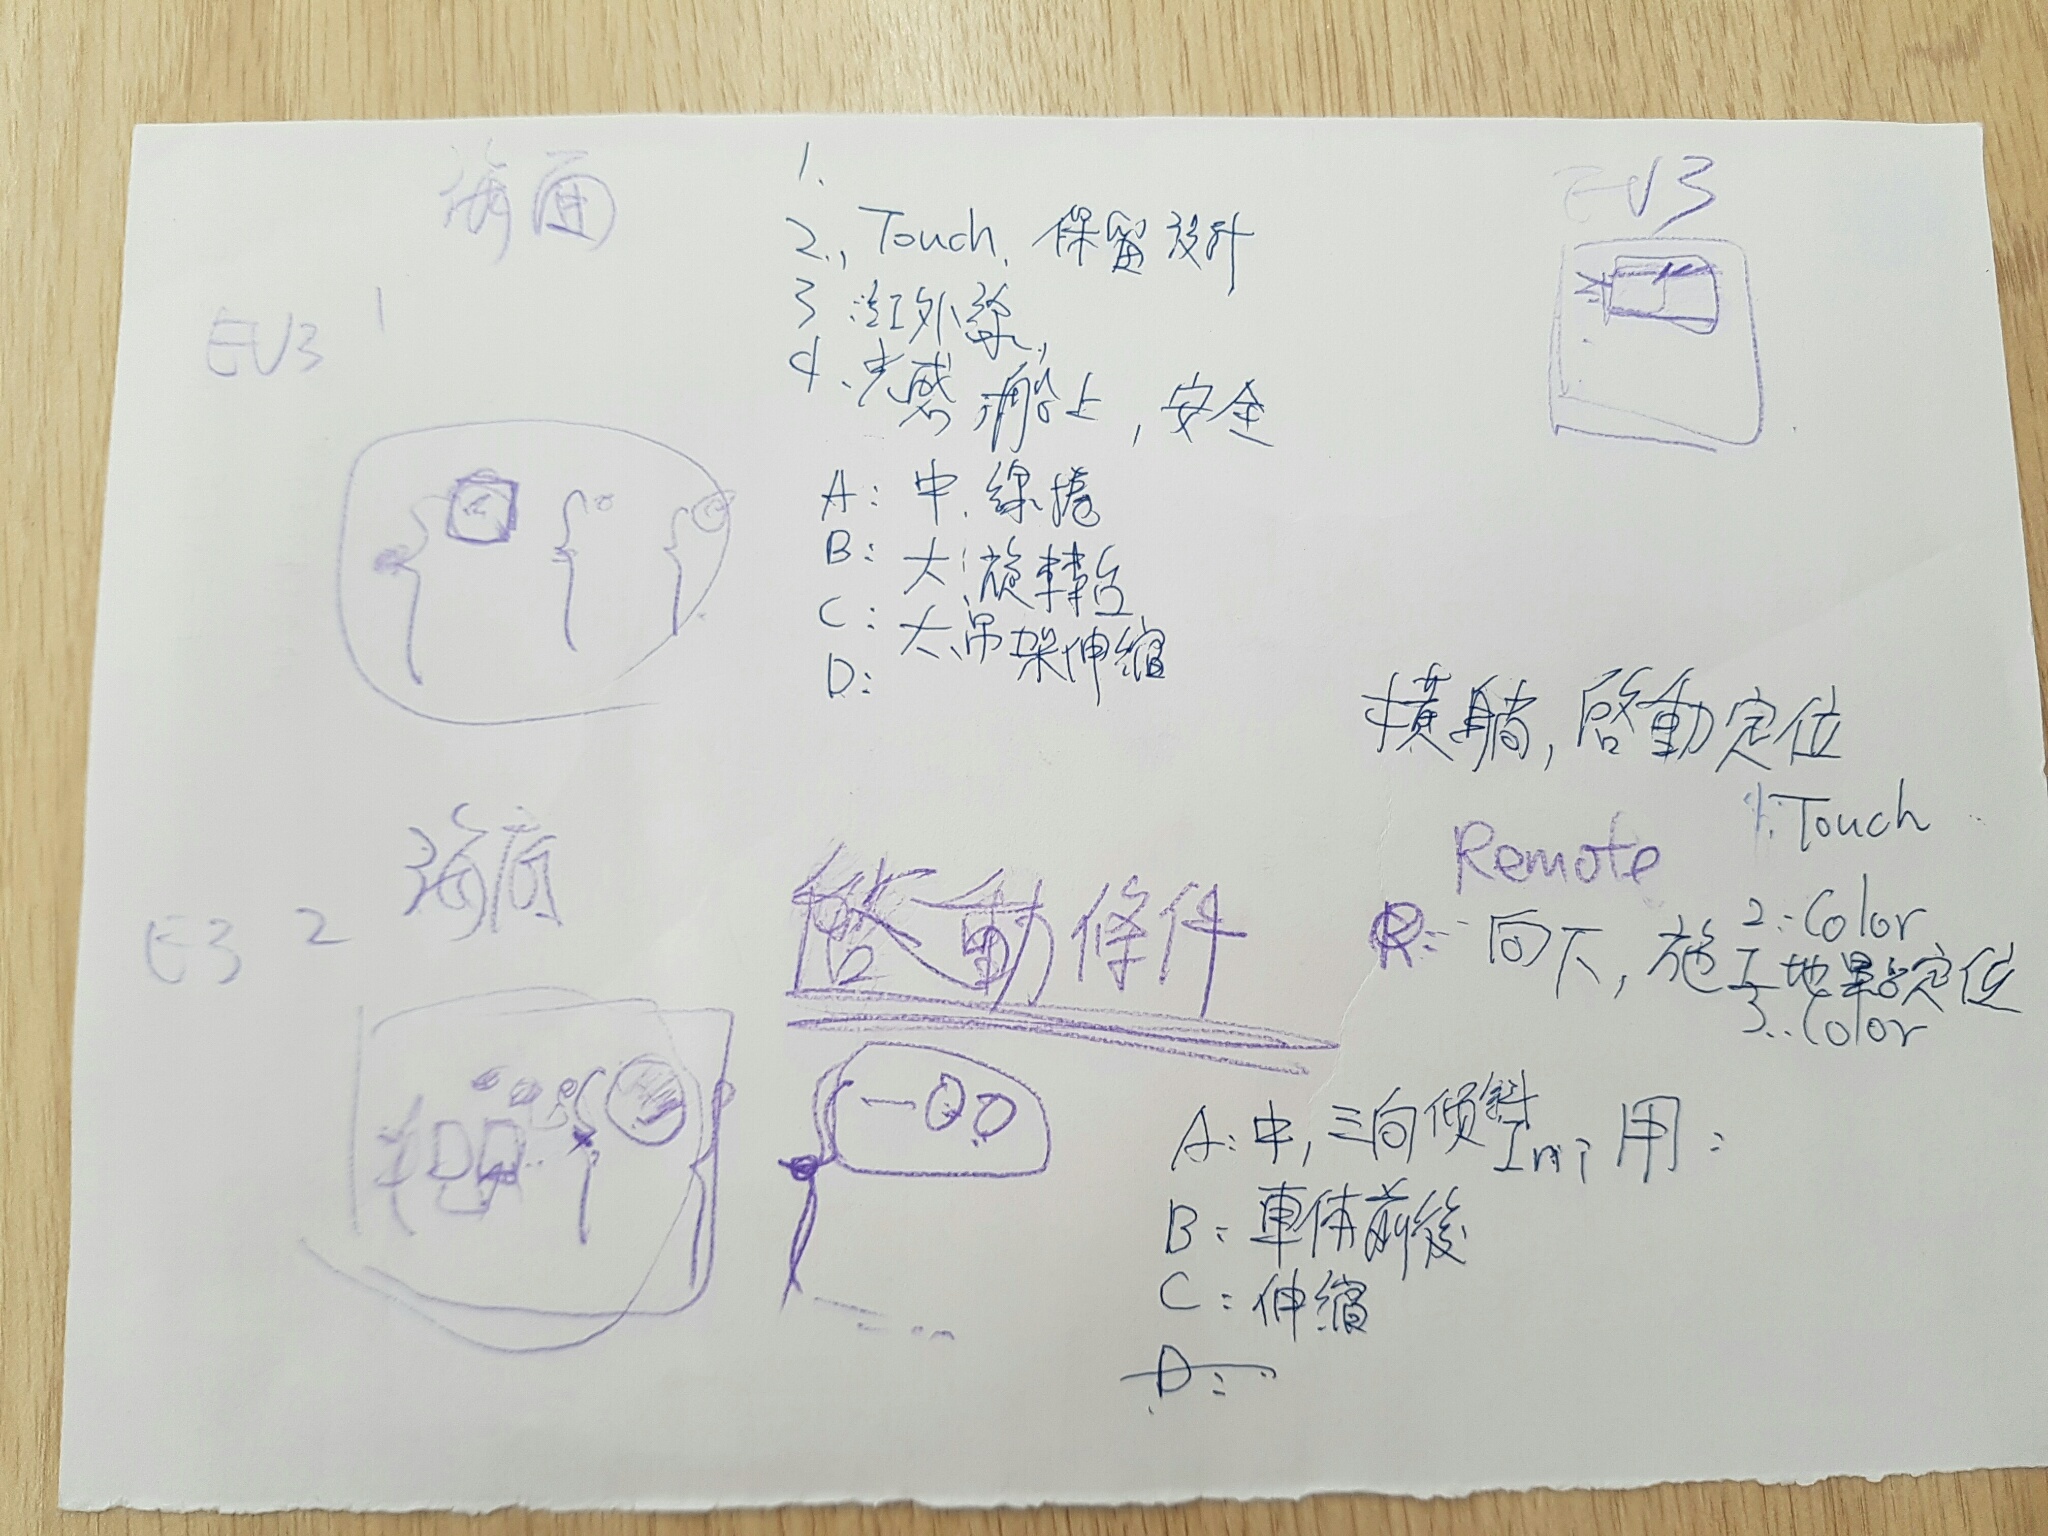 海面
EV3 1
1.
2., Touch, 保留設計
3.紅外線,
4、光感 船上, 安全
A: 中, 線捲
B: 大, 旋轉台
C: 大、吊架伸縮
D:
EV3
橫躺, 啓動定位
1: Touch
Remote
2: Color
R: 向下, 施工地點定位
3.: Color
海底
E3 2
啓動條件
A: 中, 三向傾斜 用:
B: 車体前後
C: 伸縮
D: